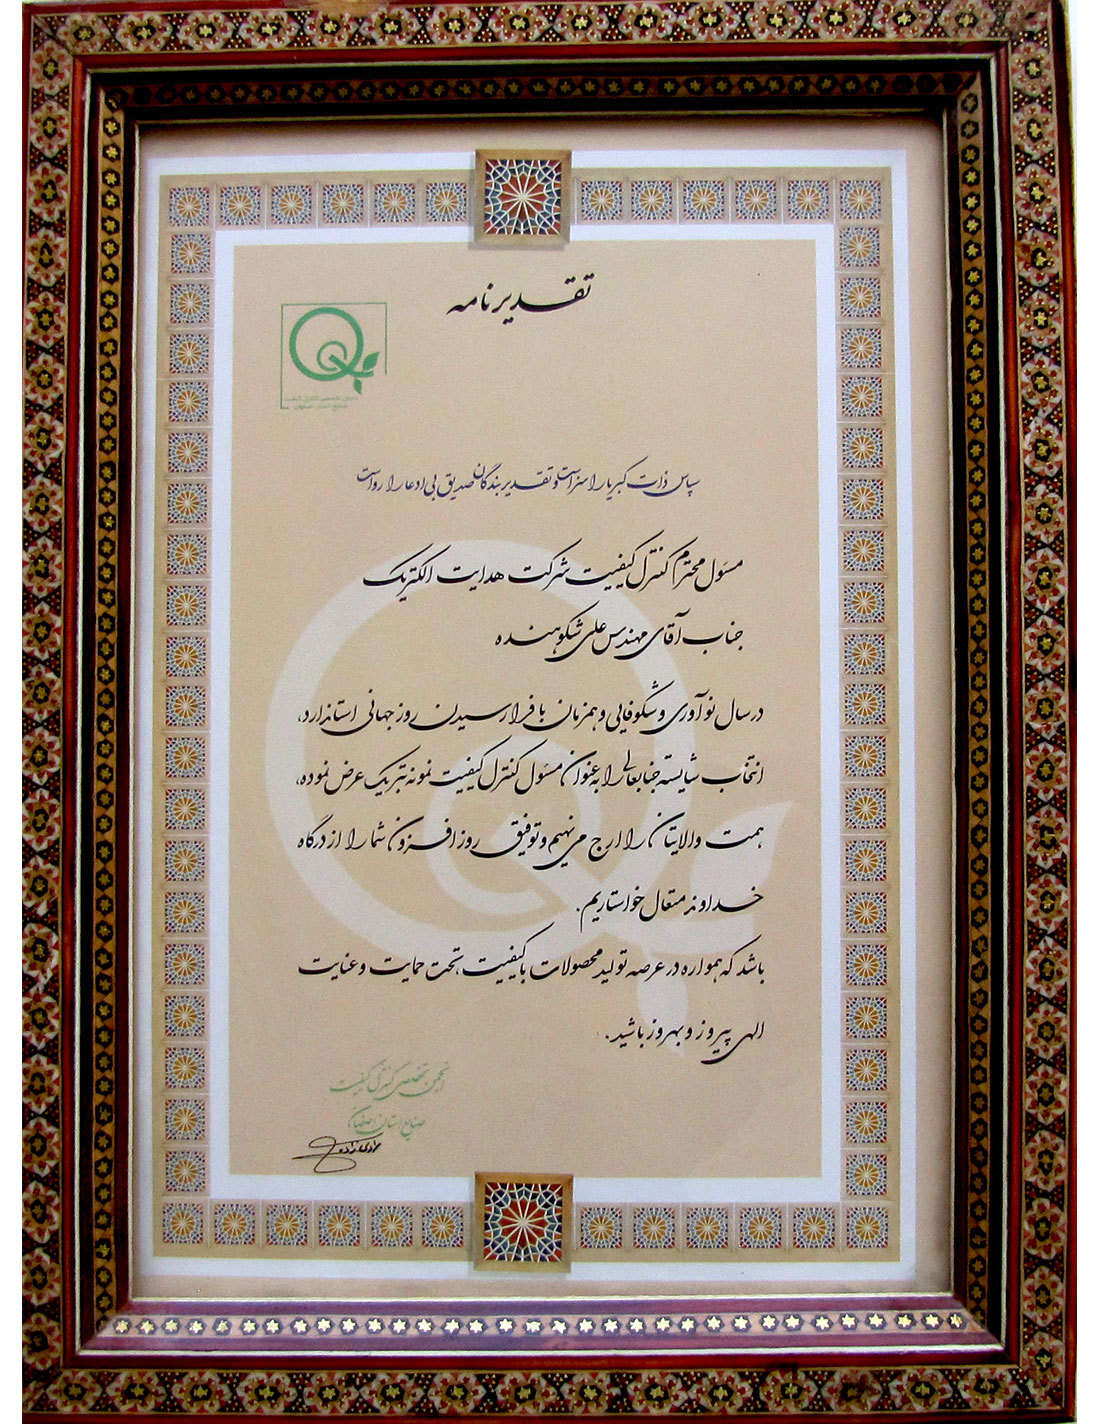 تقدیرنامه
انجمن تخصصی کنترل کیفیت
صنایع استان اصفهان
سپاس ذات کبریا را سزاست و تقدیر بندگان صدیق بی ادعا را رواست
مسئول محترم کنترل کیفیت شرکت هدایت الکتریک
جناب آقای مهندس علی شکوهنده
در سال نوآوری و شکوفایی و همزمان با فرا رسیدن روز جهانی استاندارد،
انتخاب شایسته جنابعالی را به عنوان مسئول کنترل کیفیت نمونه تبریک عرض نموده،
همت والایتان را ارج می نهیم و توفیق روز افزون شما را از درگاه
خداوند متعال خواستاریم.
باشد که همواره در عرصه تولید محصولات با کیفیت، تحت حمایت و عنایت
الهی پیروز و بهروز باشید.
انجمن تخصصی کنترل کیفیت
صنایع استان اصفهان